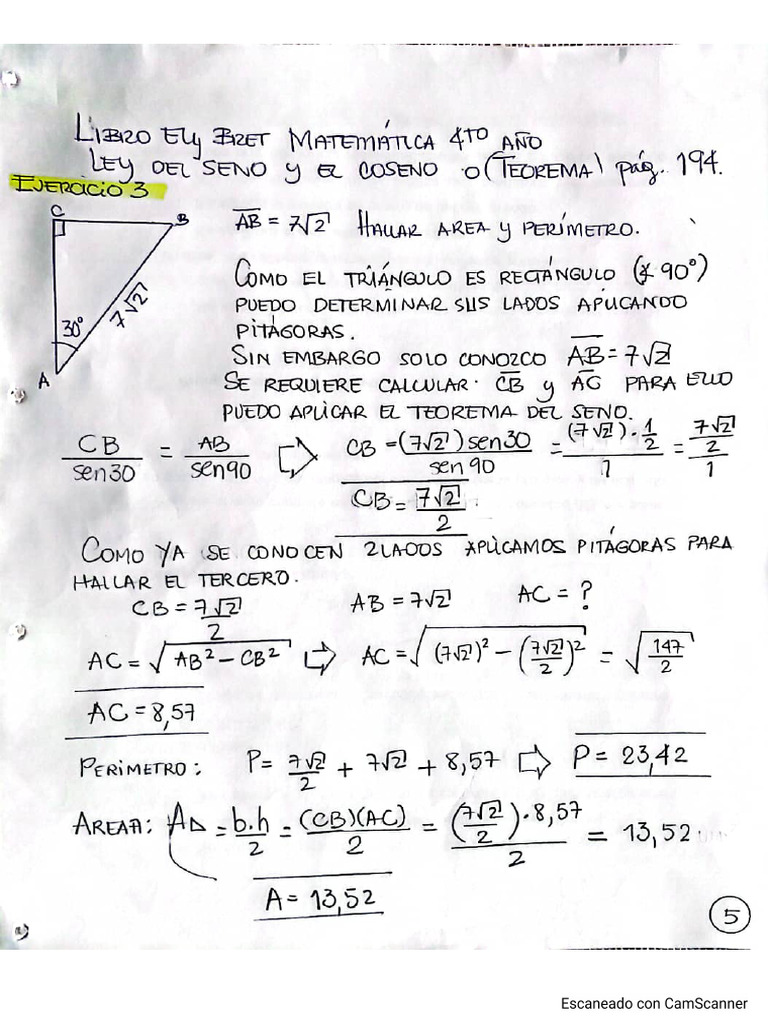 LIBRO ELY BRET MATEMÁTICA 4TO AÑO
LEY DEL SENO Y EL COSENO O (TEOREMA) pág. 194.
EJERCICIO 3
C
B
A
30°
7√2
AB = 7√2 HALLAR AREA Y PERÍMETRO.
COMO EL TRIÁNGULO ES RECTÁNGULO (∡ 90°)
PUEDO DETERMINAR SUS LADOS APLICANDO
PITÁGORAS.
SIN EMBARGO SOLO CONOZCO AB = 7√2
SE REQUIERE CALCULAR: CB y AC PARA ELLO
PUEDO APLICAR EL TEOREMA DEL SENO.
CB/sen30 = AB/sen90 ⇨ CB = (7√2) sen30/sen90 = (7√2)·1/2/1 = 7√2/2/1
CB = 7√2/2
COMO YA SE CONOCEN 2 LADOS APLICAMOS PITÁGORAS PARA
HALLAR EL TERCERO.
CB = 7√2/2 AB = 7√2 AC = ?
AC = √(AB² − CB²) ⇨ AC = √((7√2)² − (7√2/2)²) = √(147/2)
AC = 8,57
PERÍMETRO: P = 7√2/2 + 7√2 + 8,57 ⇨ P = 23,42
AREA: A△ = b.h/2 = (CB)(AC)/2 = (7√2/2)·8,57/2 = 13,52
A = 13,52
5
Escaneado con CamScanner